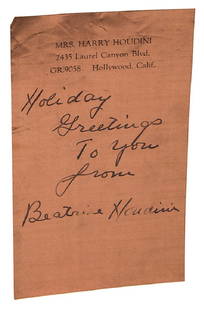 MRS. HARRY HOUDINI
2435 Laurel Canyon Blvd.
GR.9058 Hollywood, Calif.
Holiday
Greetings
To You
from
Beatrice Houdini